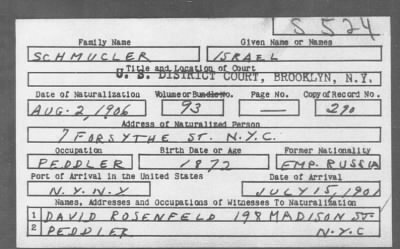 S 524
Family Name Given Name or Names
SCHMUCLER ISRAEL
Title and Location of Court
U. S. DISTRICT COURT, BROOKLYN, N.Y.
Date of Naturalization Volume or Bundle No. Page No. Copy of Record No.
AUG. 2, 1906 93 — 290
Address of Naturalized Person
7 FORSYTHE ST. N.Y.C.
Occupation Birth Date or Age Former Nationality
PEDDLER 1872 EMP. RUSSIA
Port of Arrival in the United States Date of Arrival
N.Y. N.Y JULY 15, 1901
Names, Addresses and Occupations of Witnesses To Naturalization
1 DAVID ROSENFELD 198 MADISON ST.
2 PEDDLER N.Y.C